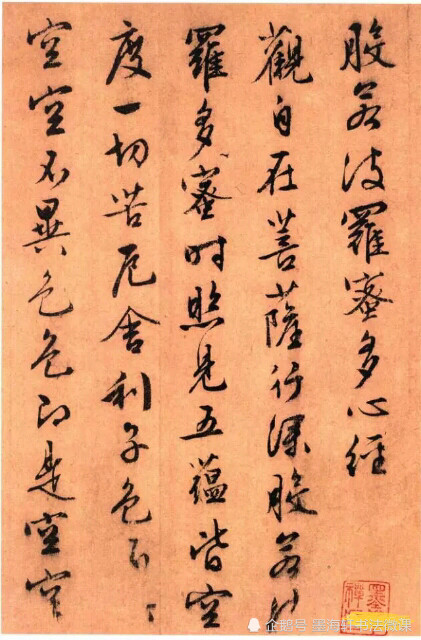 般若波羅蜜多心經
觀自在菩薩行深般若
羅多蜜時照見五蘊皆空
度一切苦厄舍利子色不
空空不異色色即是空空
企鹅号 墨海轩书法微课